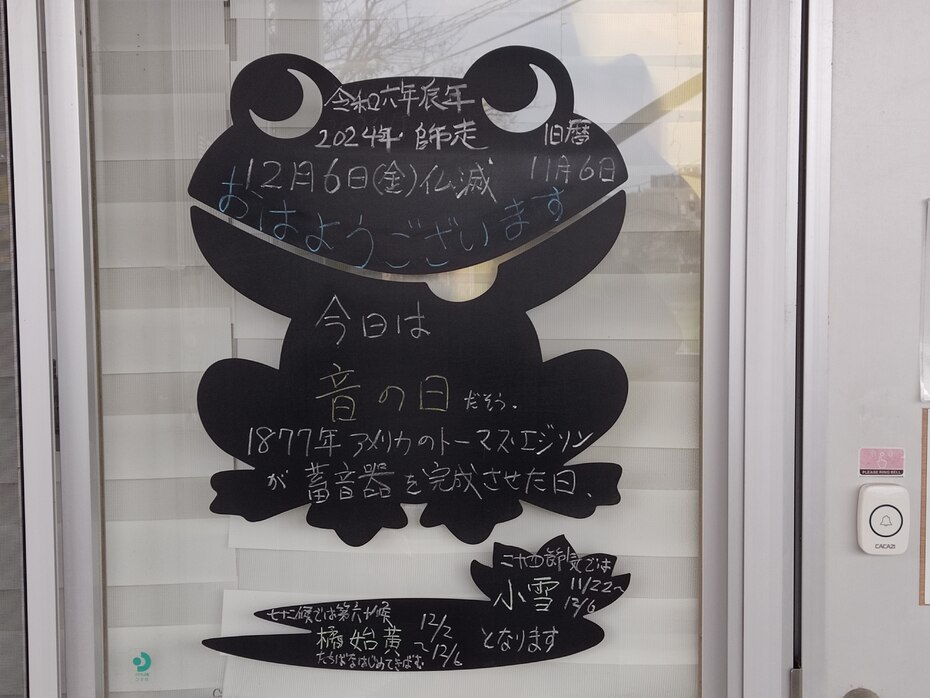 令和六年辰年
2024年・師走 旧暦
12月6日(金)仏滅 11月6日
おはようございます
今日は
音の日だそう。
1877年アメリカのトーマス・エジソン
が蓄音器を完成させた日、
二十四節気では
小雪 11/22~12/6
七十二候では第六十候
橘始黄 12/2~12/6 となります
たちばなはじめてきばむ
PLEASE RING BELL
CACAZI